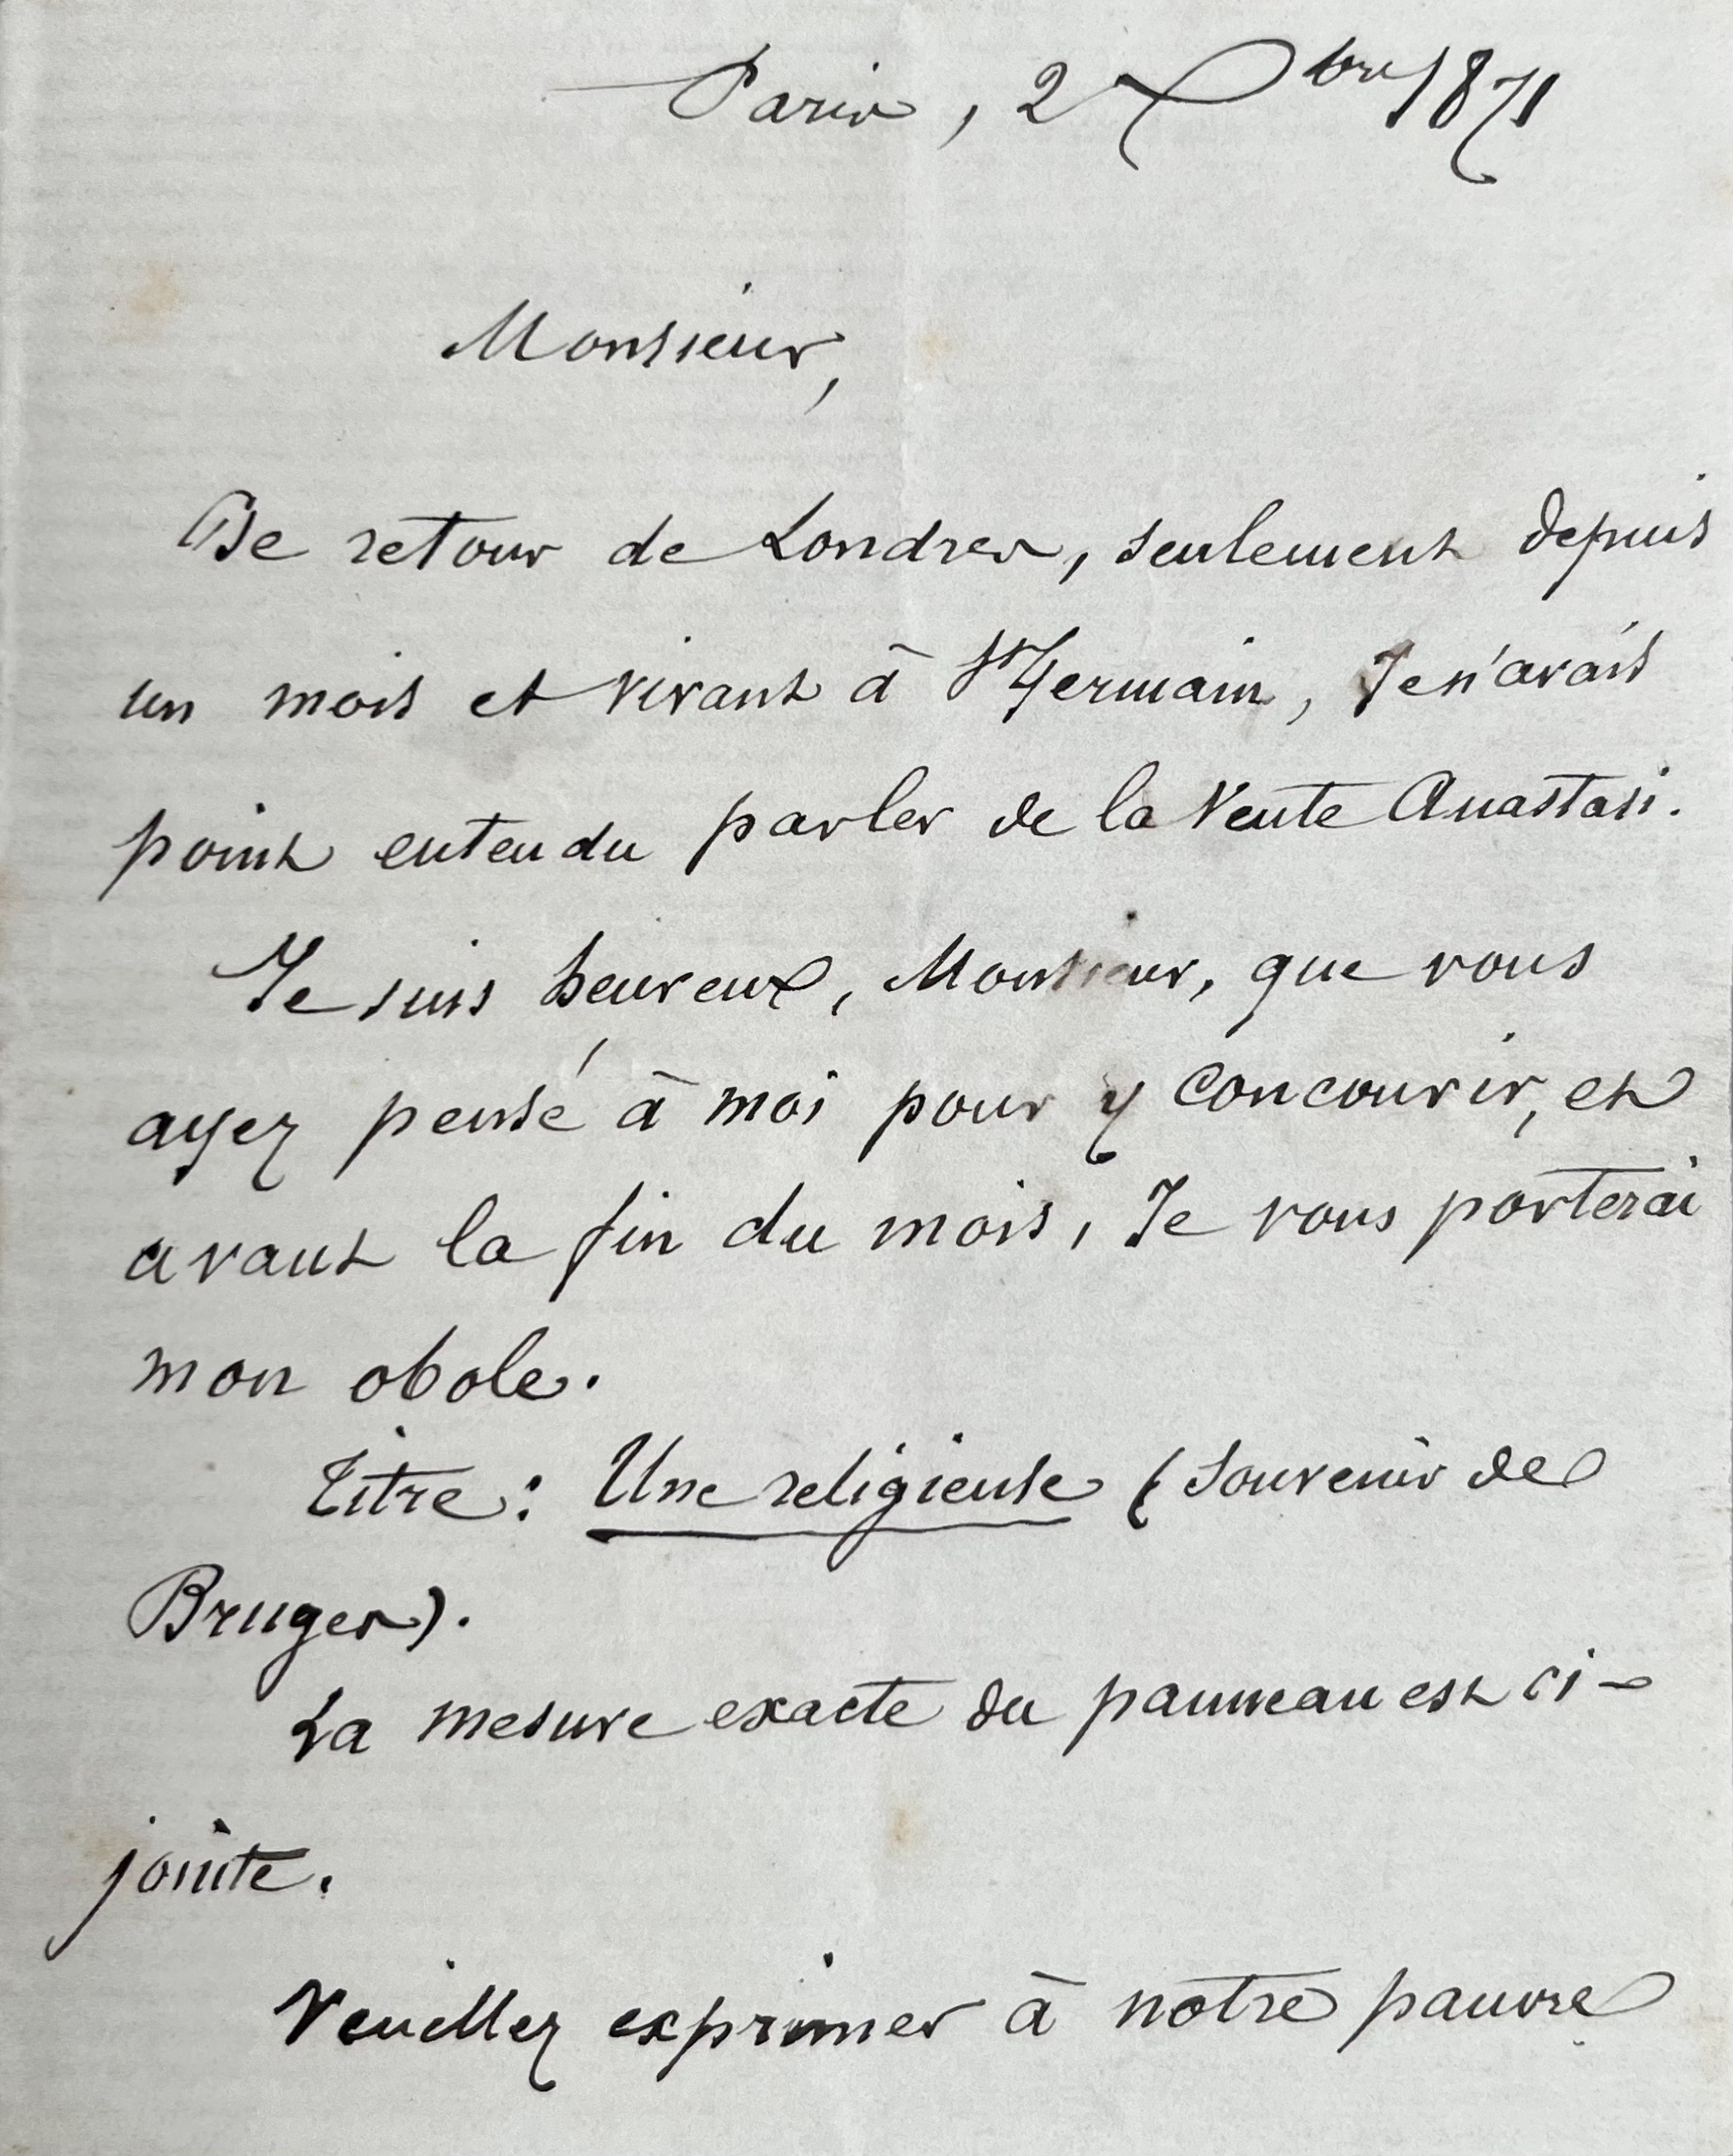 Paris, 2 Xbre 1871
Monsieur,
De retour de Londres, seulement depuis
un mois et vivant à St Germain, Je n'avais
point entendu parler de la Vente Anastasi.
Je suis heureux, Monsieur, que vous
ayez pensé à moi pour y concourir, et
avant la fin du mois, Je vous porterai
mon obole.
Titre : Une religieuse (Souvenir de
Bruges).
La mesure exacte du panneau est ci-
jointe.
Veuillez exprimer à notre pauvre